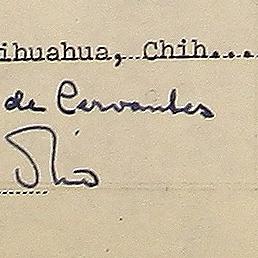 ihuahua, Chih...
de Cervantes
Río